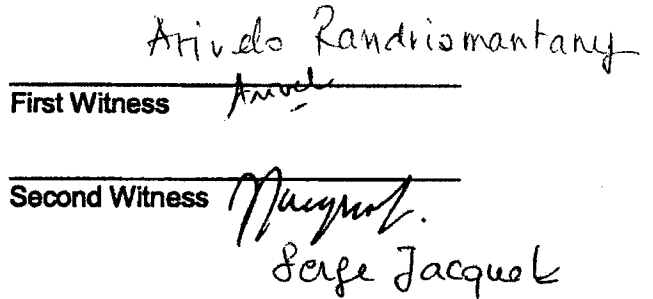 Arivelo Randriamantany
First Witness
Second Witness
Serge Jacquet